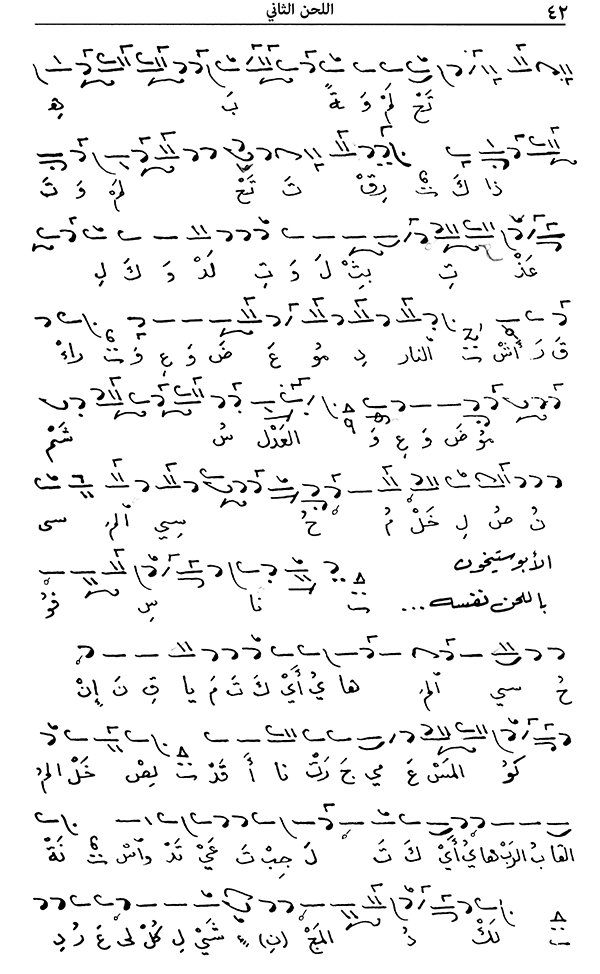 ٤٢ اللحن الثاني
تَخْ لَمْ وَ ةً بَ هِ
ذا كَ رِقْ تَ تَحْ لَمْ وَ تَ
عَذْ تِ بِثْ لَ وَ تِ لَدْ وَ كَ لِ
قَ رَ أَشْ النار دِ مُوْ عَ ضَ وَ عِ وَ راكْ
مُوْ ضَ وَ عِ وَ العَدْلِ سُ شَمْ
نُ صُ لِ خَلْ مُ خُ سِي المـ سى
الأبوستيخون
باللحن نفسه... نا سِ فُوْ
خُ سي المـ ها يُ أَيْ كَ تَ مَ يا قِ نَ إِنْ
كُوْ المَسْ عَ مي جَ رَتْ نا أَ قَدْ لِصْ خَلْ المُ
القابُ الرَبْ هاي أَيْ كَ تَ لَ جِبْ تَ عَيْ تَدْ واسْ نَةْ
لَكْ دُ المَجْ (نِ) شَيْ لِ كُلْ لى عَ رُ دِ